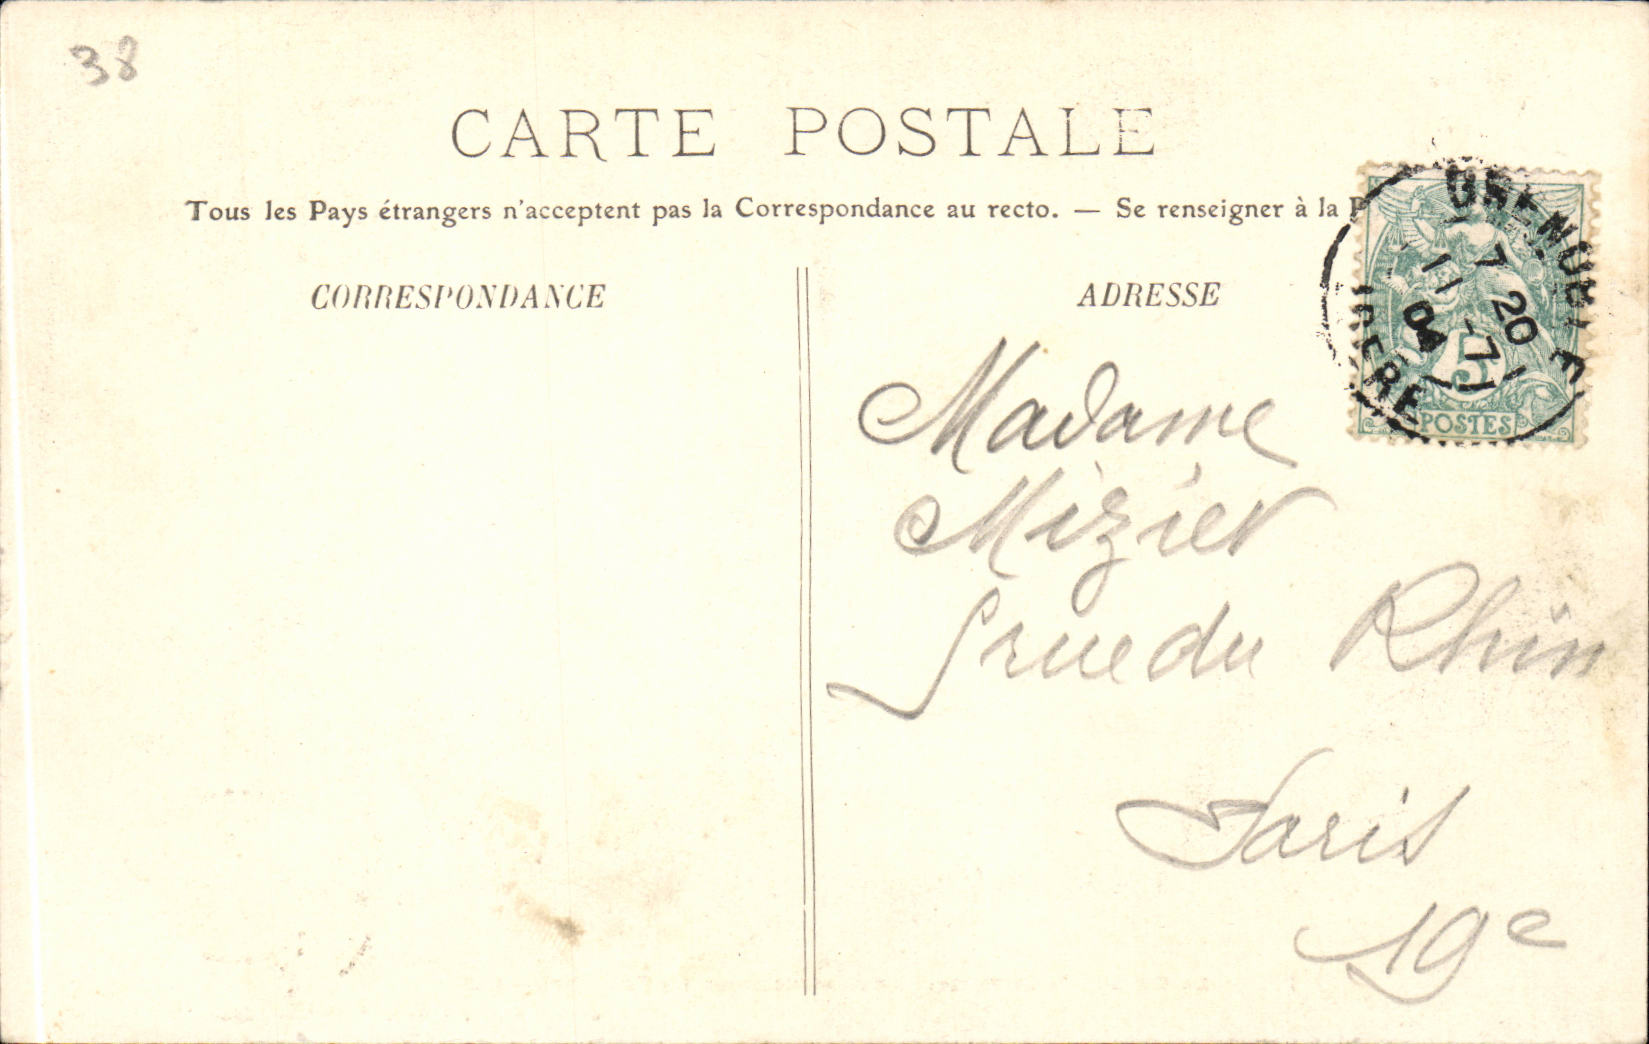 38
CARTE POSTALE
Tous les Pays étrangers n'acceptent pas la Correspondance au recto. — Se renseigner à la P
CORRESPONDANCE
ADRESSE
GRENOBLE
7 20
11 -7
04
ISERE
5
POSTES
Madame
Mizier
rue du Rhin
Paris
19e